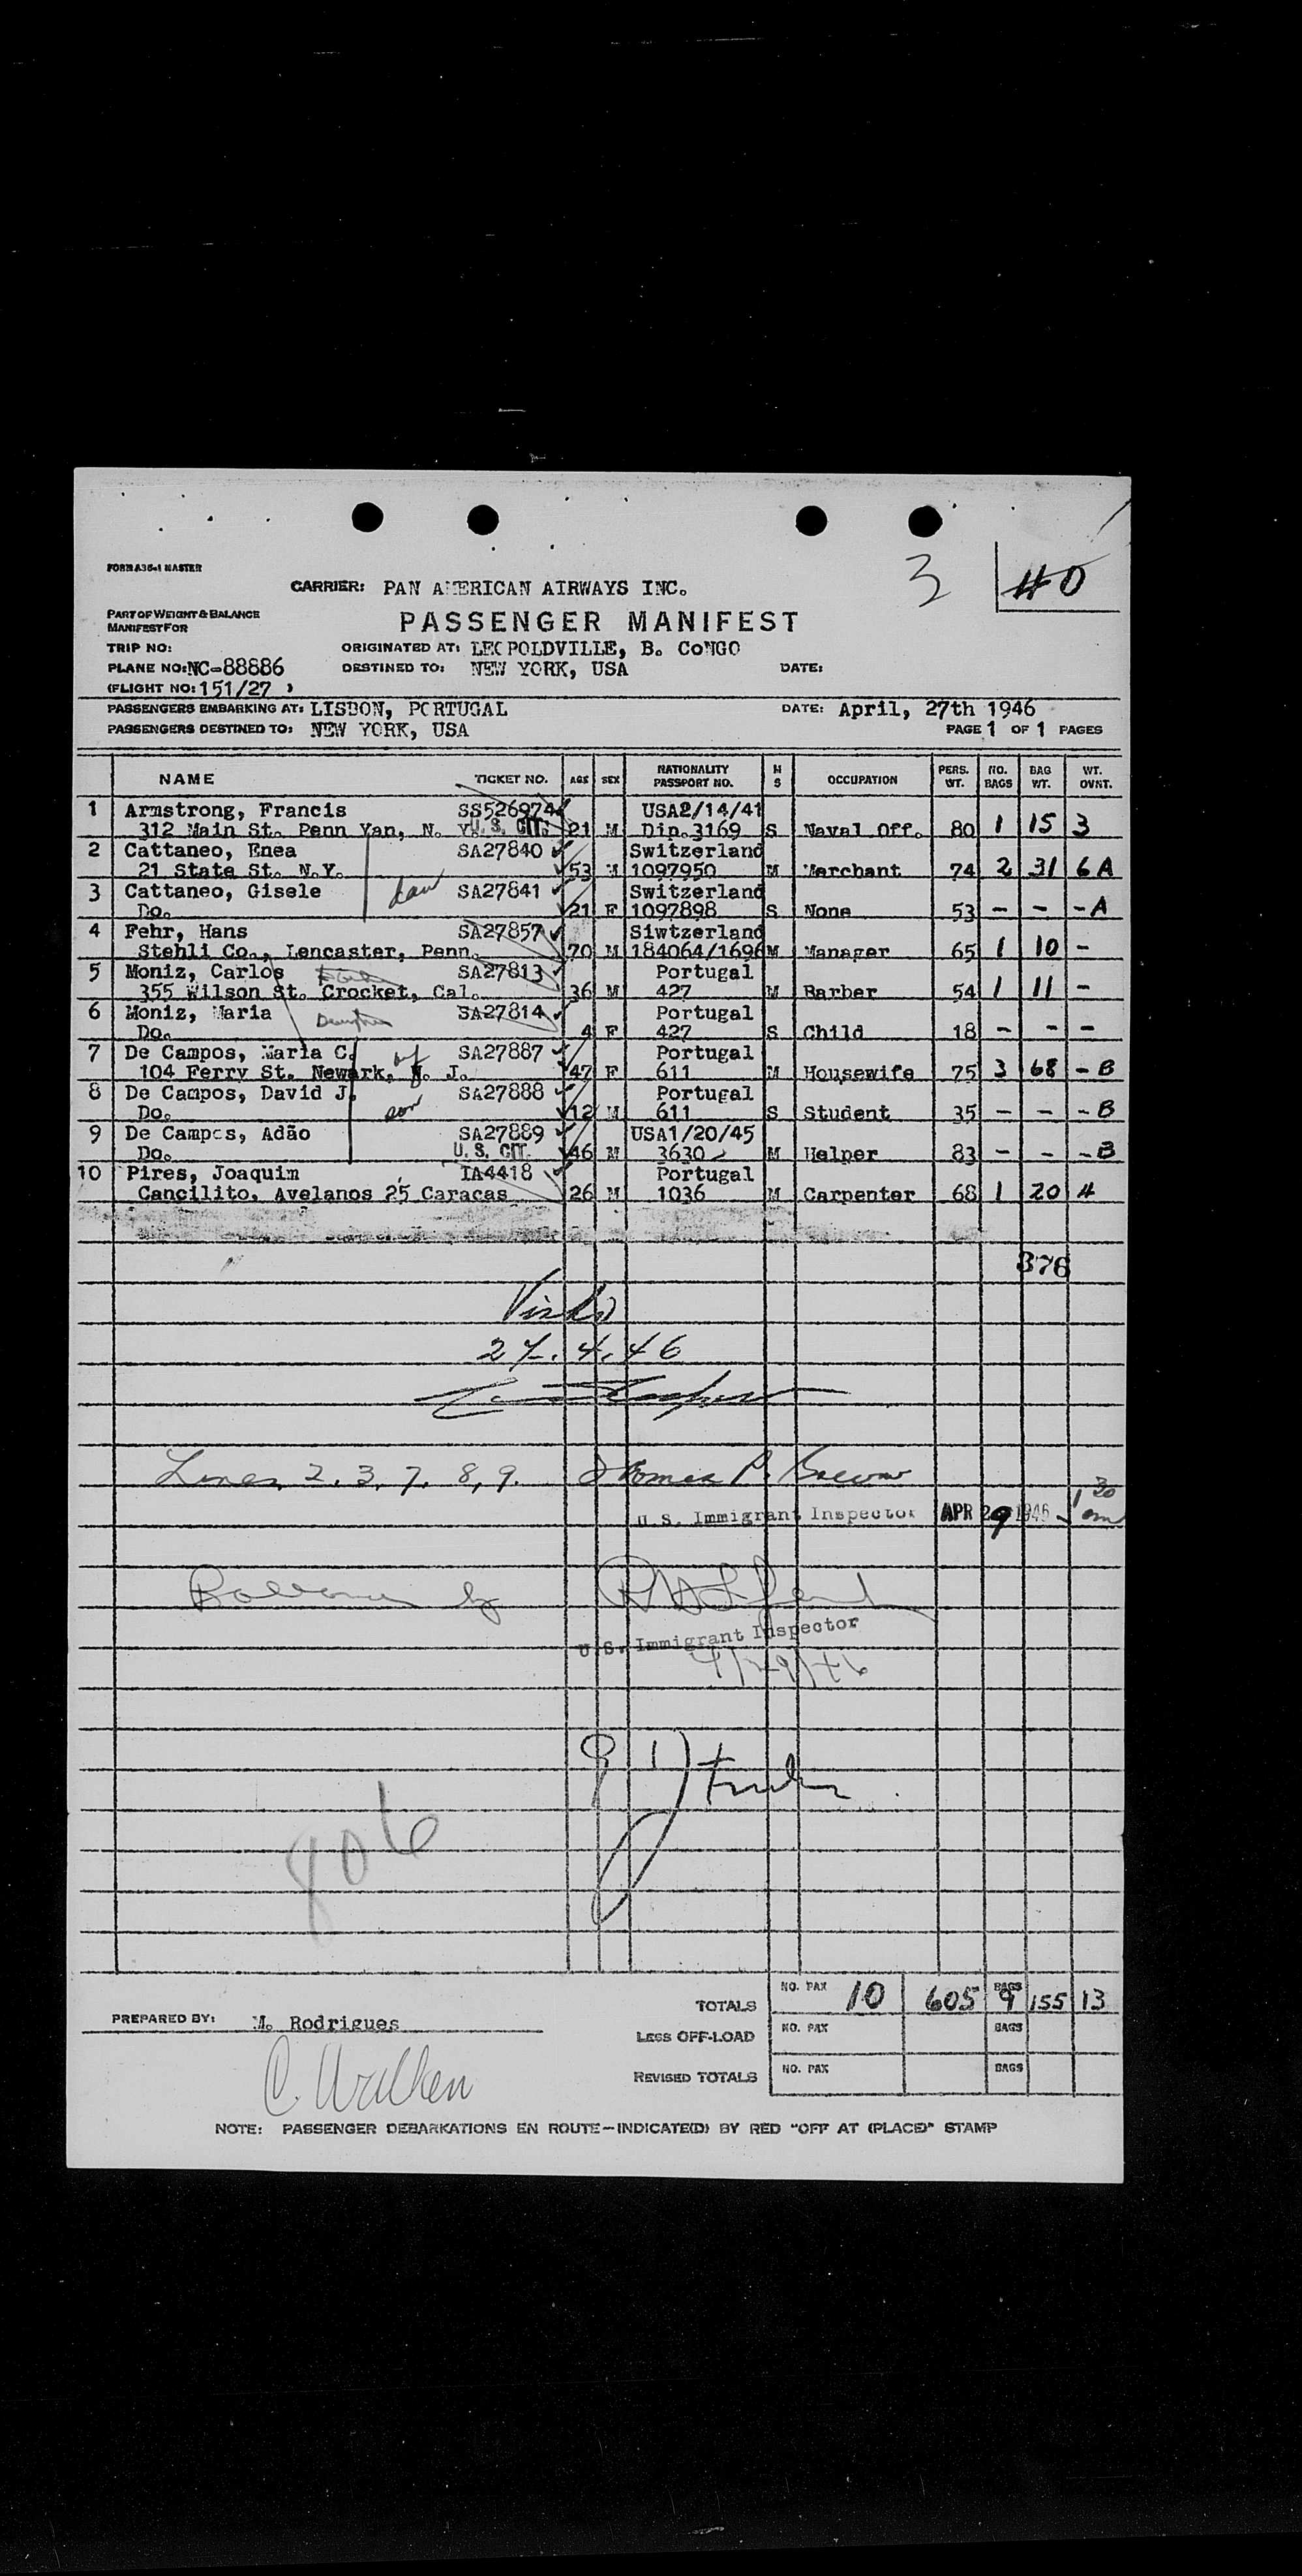 3
40
FORM A36-1 MASTER
CARRIER: PAN AMERICAN AIRWAYS INC.
PART OF WEIGHT & BALANCE
MANIFEST FOR
PASSENGER MANIFEST
TRIP NO: ORIGINATED AT: LEOPOLDVILLE, B. CONGO
PLANE NO: NC-88886 DESTINED TO: NEW YORK, USA DATE:
(FLIGHT NO: 151/27 )
PASSENGERS EMBARKING AT: LISBON, PORTUGAL DATE: April, 27th 1946
PASSENGERS DESTINED TO: NEW YORK, USA PAGE 1 OF 1 PAGES
NAME TICKET NO. AGE SEX NATIONALITY PASSPORT NO. M S OCCUPATION PERS. WT. NO. BAGS BAG WT. WT. OVWT.
1 Armstrong, Francis SS526974 USA2/14/41
312 Main St. Penn Yan, N. Y. U.S. CIT. 21 M Dip.3169 S Naval Off. 80 1 15 3
2 Cattaneo, Enea SA27840 Switzerland
21 State St. N.Y. 53 M 1097950 M Merchant 74 2 31 6 A
3 Cattaneo, Gisele dau SA27841 Switzerland
Do. 21 F 1097898 S None 53 - - - A
4 Fehr, Hans SA27857 Siwtzerland
Stehli Co., Lencaster, Penn. 70 M 184064/1696 M Manager 65 1 10 -
5 Moniz, Carlos SA27813 Portugal
355 Wilson St. Crocket, Cal. 36 M 427 M Barber 54 1 11 -
6 Moniz, Maria Daughter SA27814 Portugal
Do. 4 F 427 S Child 18 - - -
7 De Campos, Maria C. SA27887 Portugal
104 Ferry St. Newark, N. J. 47 F 611 M Housewife 75 3 68 - B
8 De Campos, David J. son SA27888 Portugal
Do. 12 M 611 S Student 35 - - - B
9 De Campos, Adão SA27889 USA1/20/45
Do. U.S. CIT. 46 M 3630 M Helper 83 - - - B
10 Pires, Joaquim IA4418 Portugal
Cancilito, Avelanos 25 Caracas 26 M 1036 M Carpenter 68 1 20 4
376
Visto
27.4.46
Lines 2, 3, 7, 8, 9. Thomas P. Brown
U. S. Immigrant Inspector APR 29 1946 - 1 30 am
Balance by
U.S. Immigrant Inspector
4/29/46
806
TOTALS NO. PAX 10 605 BAGS 9 155 13
PREPARED BY: M. Rodrigues
LESS OFF-LOAD NO. PAX BAGS
REVISED TOTALS NO. PAX BAGS
NOTE: PASSENGER DEBARKATIONS EN ROUTE-INDICATE(D) BY RED "OFF AT (PLACE)" STAMP